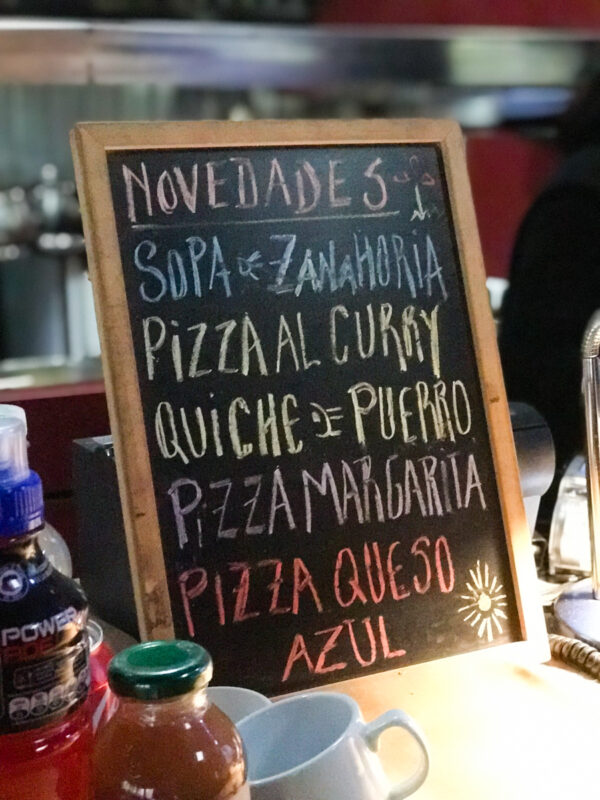 NOVEDADES
SOPA DE ZANAHORIA
PIZZA AL CURRY
QUICHE DE PUERRO
PIZZA MARGARITA
PIZZA QUESO
AZUL
POWER